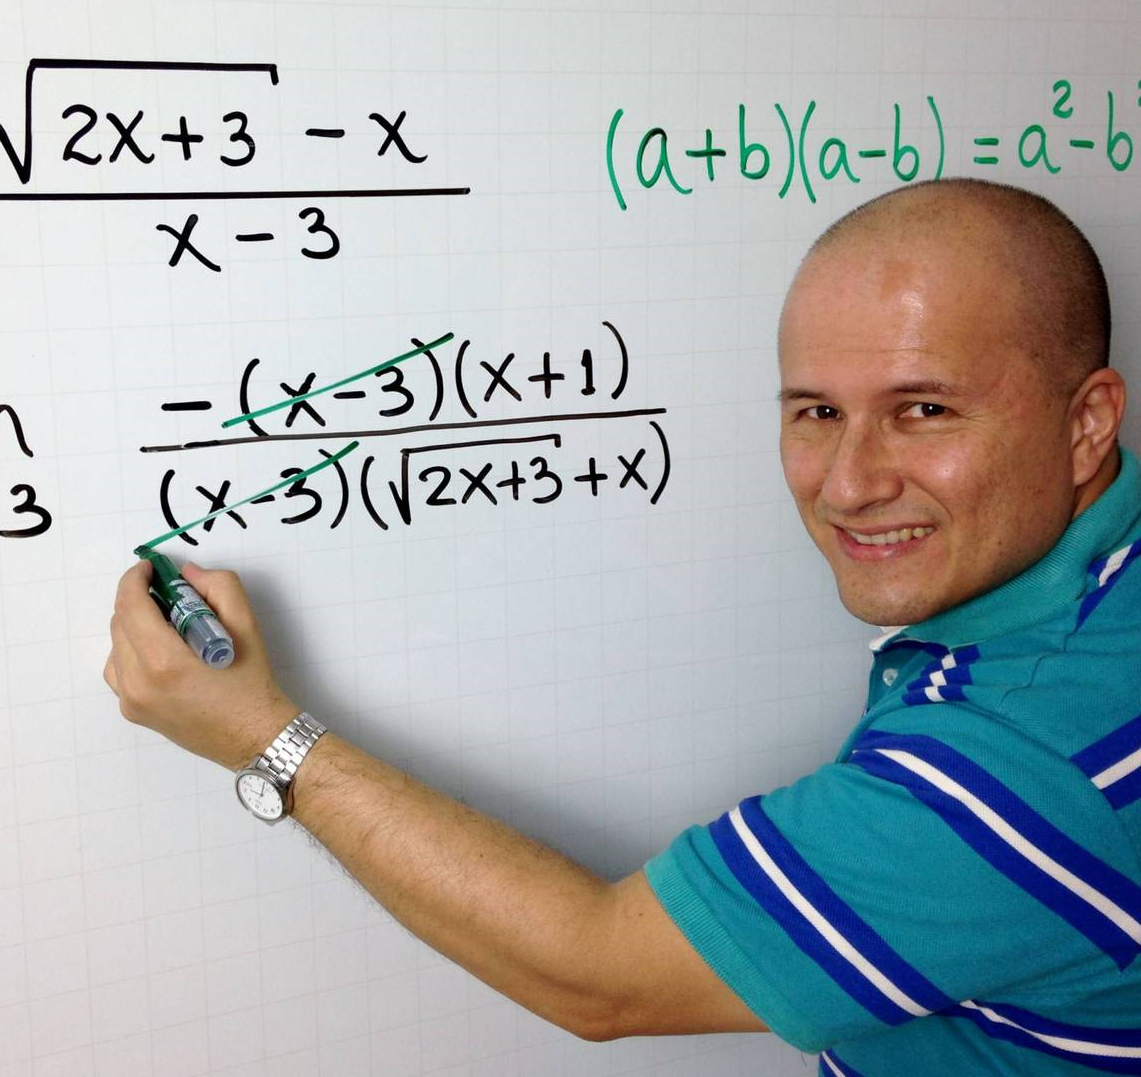 √2x+3 - x
x - 3
(a+b)(a-b) = a²-b²
-(x-3)(x+1)
(x-3)(√2x+3+x)
3